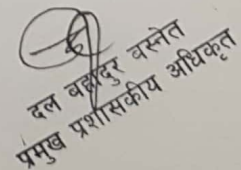 दल बहादुर वस्नेत
प्रमुख प्रशासकीय अधिकृत